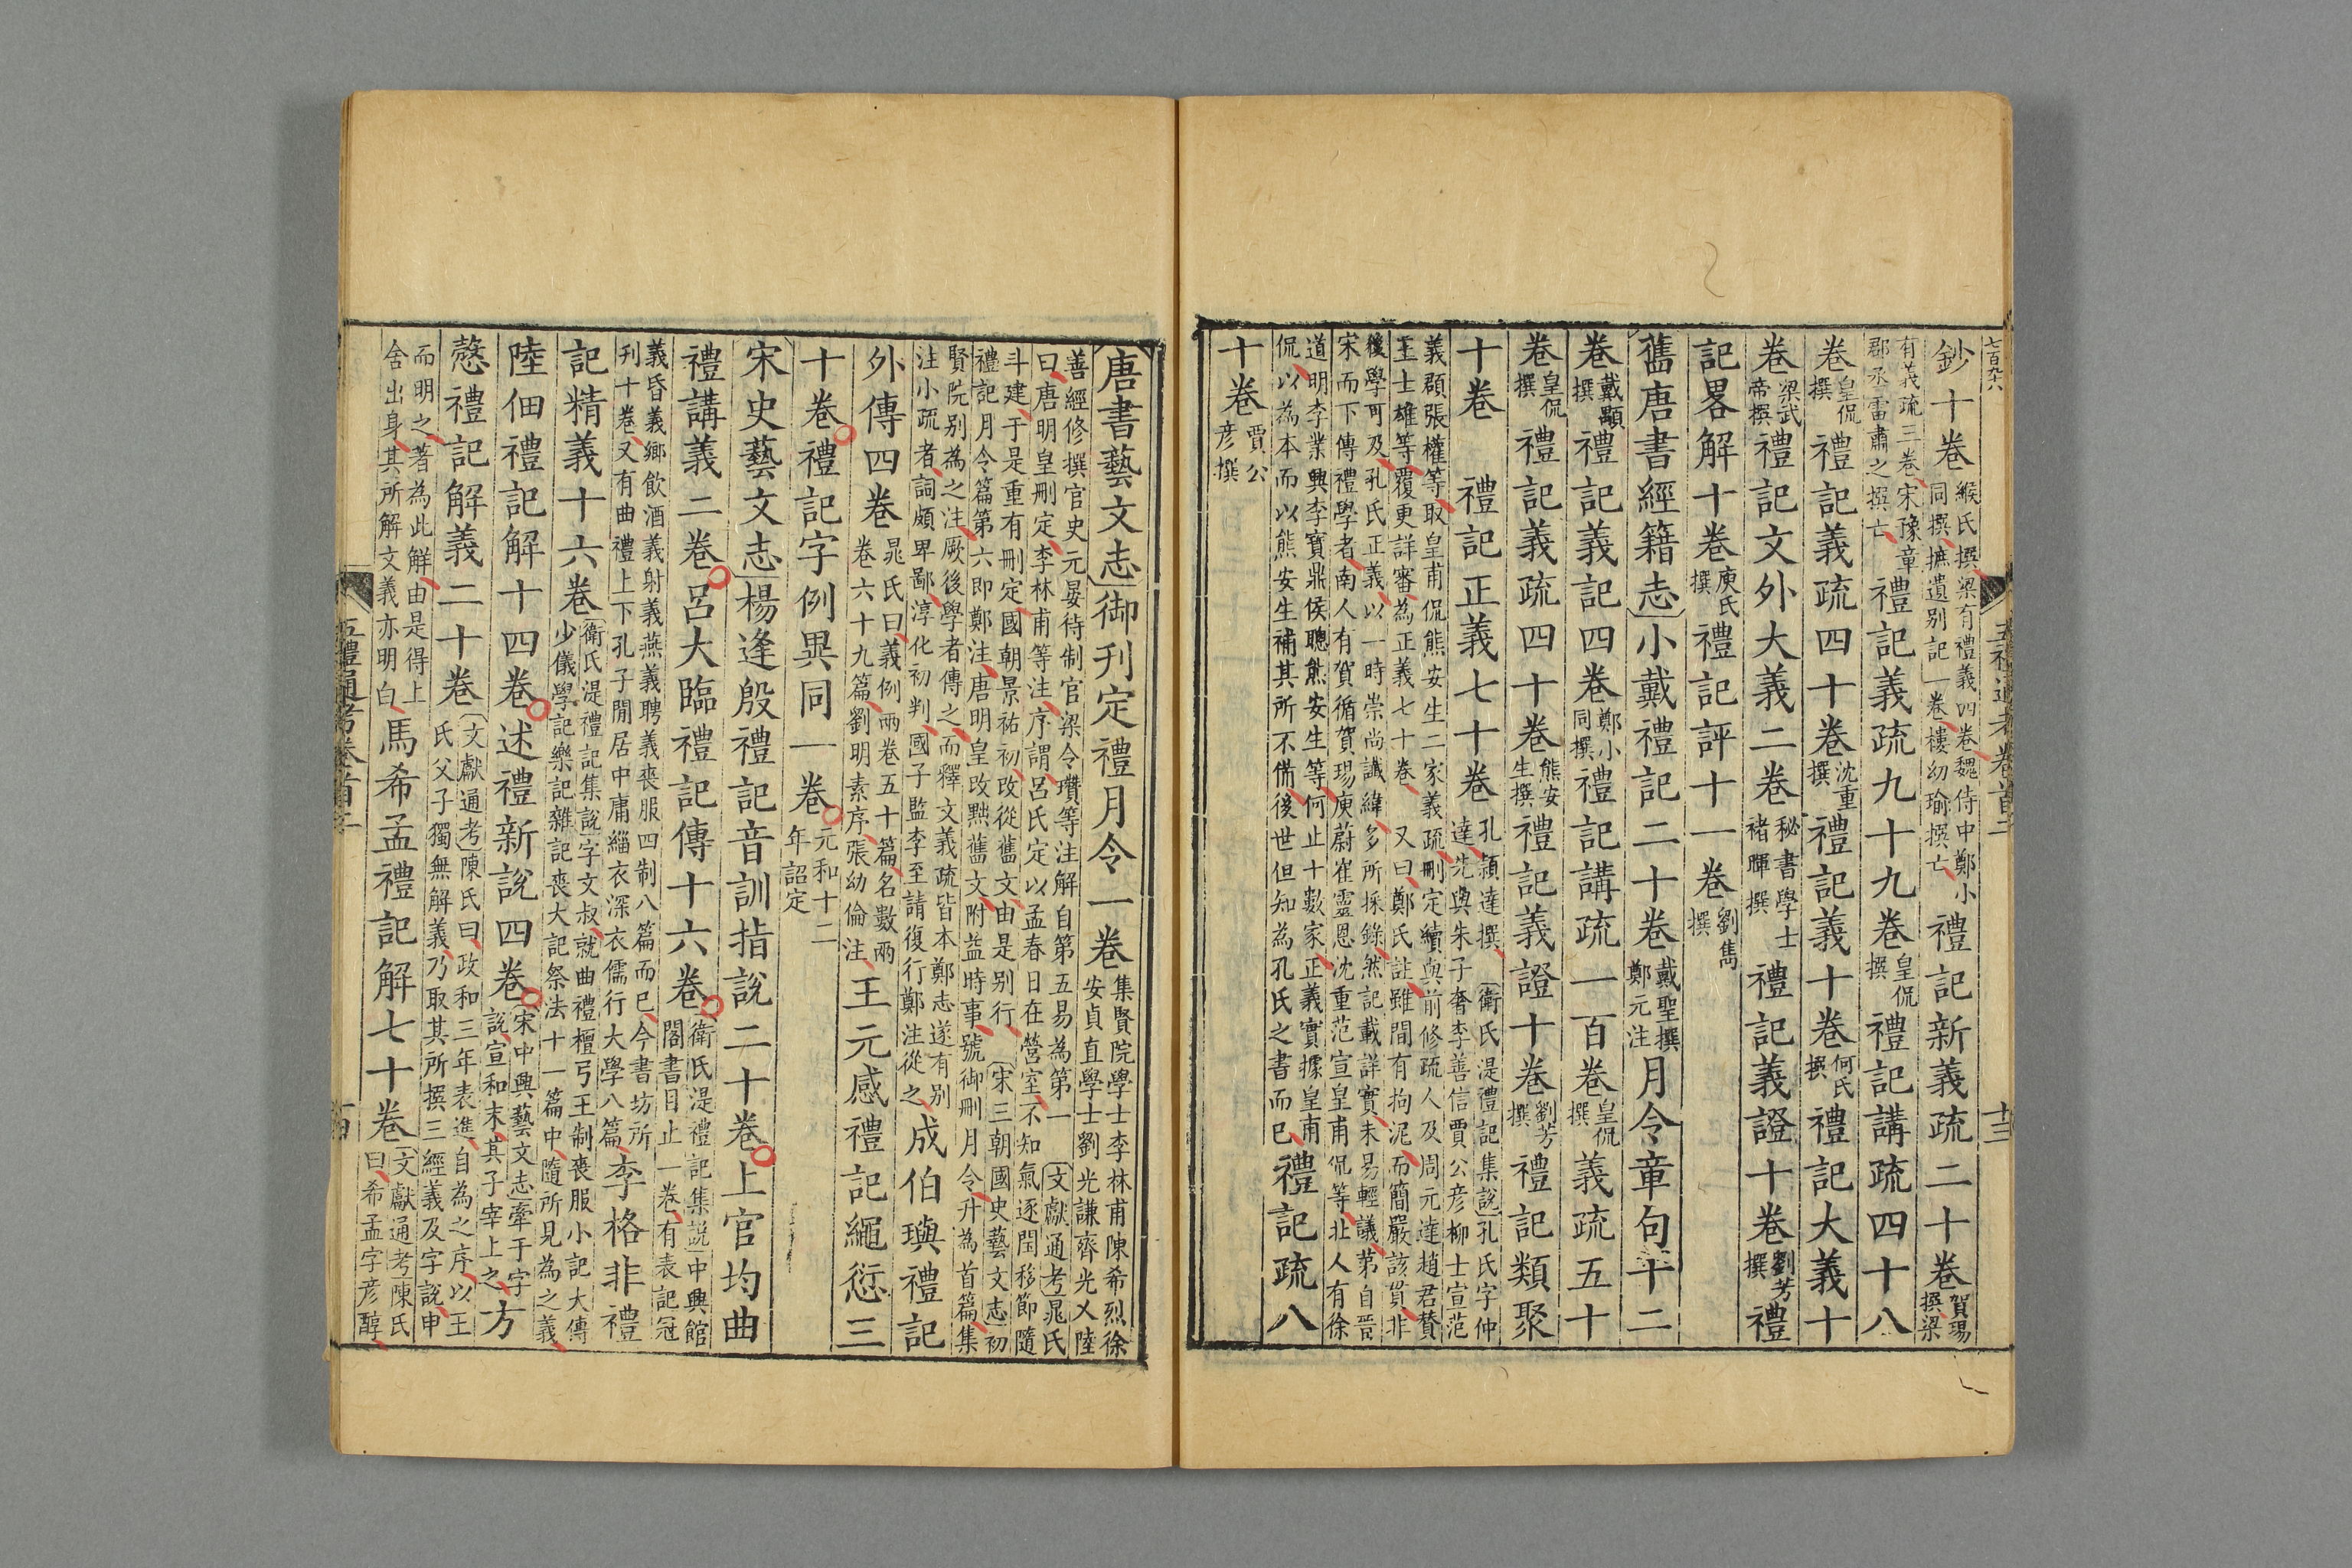 七百九十八
五禮通考卷首二
十三
鈔十卷緱氏撰梁有禮義四卷魏侍中鄭小同撰摭遺别記一卷樓幼瑜撰亡禮記新義疏二十卷賀瑒撰梁
有義疏三卷宋豫章郡丞雷肅之撰亡禮記義疏九十九卷皇侃撰禮記講疏四十八
卷皇侃撰禮記義疏四十卷沈重撰禮記義十卷何氏撰禮記大義十
卷梁武帝撰禮記文外大義二卷秘書學士褚暉撰禮記義證十卷劉芳撰禮
記畧解十卷庾氏撰禮記評十一卷劉雋撰
舊唐書經籍志小戴禮記二十卷戴聖撰鄭元注月令章句十二
卷戴顒撰禮記義記四卷鄭小同撰禮記講疏一百卷皇侃撰義疏五十
卷皇侃撰禮記義疏四十卷熊安生撰禮記義證十卷劉芳撰禮記類聚
十卷禮記正義七十卷孔穎達撰衛氏湜禮記集説孔氏字仲達先與朱子奢李善信賈公彦柳士宣范
義頵張權等取皇甫侃熊安生二家義疏刪定續與前修疏人及周元達趙君贊
王士雄等覆更詳審為正義七十卷又曰鄭氏註雖間有拘泥而簡嚴該貫非
後學可及孔氏正義以一時崇尚讖緯多所採錄然記載詳實未易輕議第自晉
宋而下傳禮學者南人有賀循賀瑒庾蔚崔靈恩沈重范宣皇甫侃等北人有徐
道明李業興李寶鼎侯聰熊安生等何止十數家正義實據皇甫
侃以為本而以熊安生補其所不備後世但知為孔氏之書而已禮記疏八
十卷賈公彦撰
唐書藝文志御刊定禮月令一卷集賢院學士李林甫陳希烈徐安貞直學士劉光謙齊光乂陸
善經修撰官史元晏待制官梁令瓚等注解自第五易為第一文獻通考晁氏
曰唐明皇刪定李林甫等注序謂呂氏定以孟春日在營室不知氣逐閏移節隨
斗建于是重有刪定國朝景祐初改從舊文由是别行宋三朝國史藝文志初
禮記月令篇第六即鄭注唐明皇改黜舊文附益時事號御刪月令升為首篇集
賢院别為之注厥後學者傳之而釋文義疏皆本鄭志遂有别
注小疏者詞頗卑鄙淳化初判國子監李至請復行鄭注從之成伯璵禮記
外傳四卷晁氏曰義例兩卷五十篇名數兩卷六十九篇劉明素序張幼倫注王元感禮記繩愆三
十卷禮記字例異同一卷元和十二年詔定
宋史藝文志楊逢殷禮記音訓指説二十卷上官均曲
禮講義二卷呂大臨禮記傳十六卷衛氏湜禮記集説中興館閣書目止一卷有表記冠
義昏義鄉飲酒義射義燕義聘義喪服四制八篇而已今書坊所
刊十卷又有曲禮上下孔子閒居中庸緇衣深衣儒行大學八篇李格非禮
記精義十六卷衛氏湜禮記集説字文叔就曲禮檀弓王制喪服小記大傳少儀學記樂記雜記喪大記祭法十一篇中隨所見為之義
陸佃禮記解十四卷述禮新説四卷宋中興藝文志牽于字説宣和末其子宰上之方
慤禮記解義二十卷文獻通考陳氏曰政和三年表進自為之序以王氏父子獨無解義乃取其所撰三經義及字説申
而明之著為此解由是得上
舍出身其所解文義亦明白馬希孟禮記解七十卷文獻通考陳氏曰希孟字彦醇
五禮通考卷首二
十四